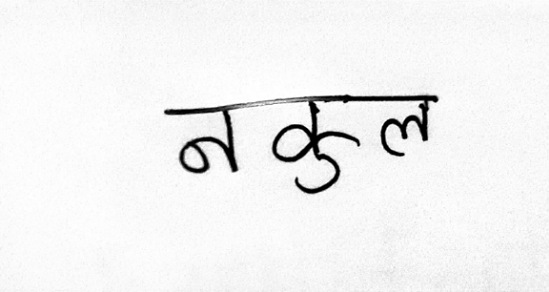 नकुल